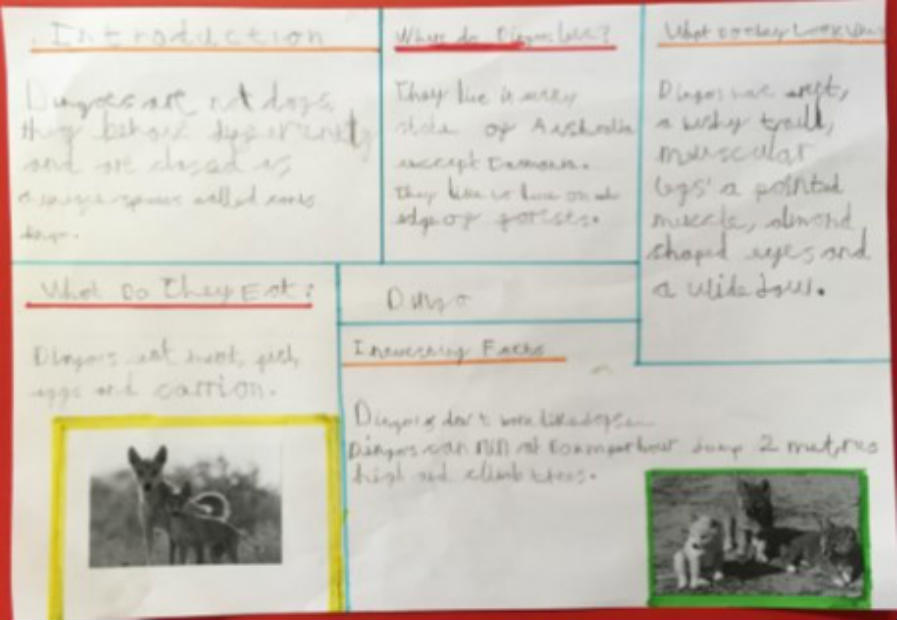 Introduction
Dingoes are not dogs,
they behave
and are classed as
a species called canis
dingo.
Where do Dingos live?
They live in every
state of Australia
except
They like to live on
edge of forests.
What do they look like
Dingos have
a bushy
muscular
legs' a pointed
muzzle, almond
shaped eyes and
a wide jaw.
What Do They Eat?
Dingos eat meat,
eggs and carrion.
Dingo
Interesting Facts
Dingos don't like dogs
Dingos can run at per hour jump 2 metres
high and climb trees.